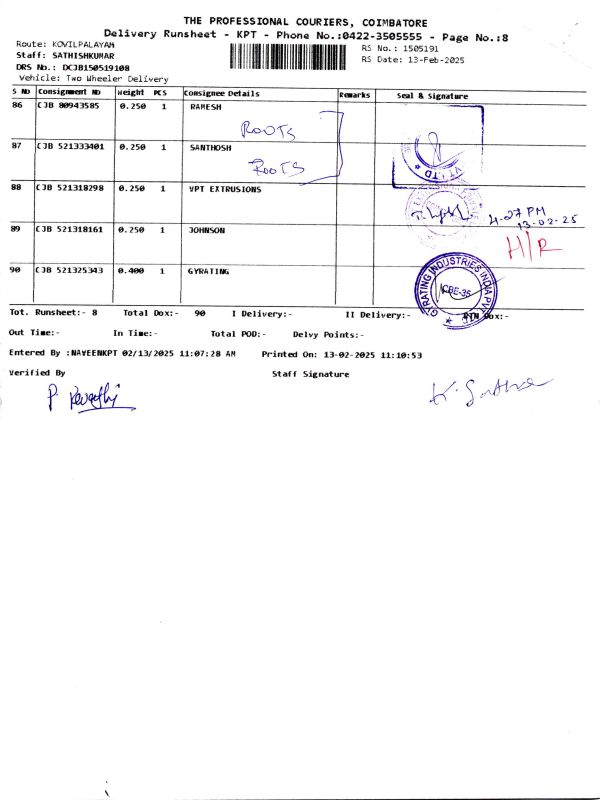 THE PROFESSIONAL COURIERS, COIMBATORE
Delivery Runsheet - KPT - Phone No.:0422-3505555 - Page No.:8
Route: KOVILPALAYAM
RS No.: 1505191
Staff: SATHISHKUMAR
RS Date: 13-Feb-2025
DRS No.: DCJB150519108
Vehicle: Two Wheeler Delivery
S NO Consignment NO Weight PCS Consignee Details Remarks Seal & Signature
86 CJB 80943585 0.250 1 RAMESH
ROOTS
87 CJB 521333401 0.250 1 SANTHOSH
ROOTS
VT LTD
88 CJB 521318298 0.250 1 VPT EXTRUSIONS
4-27 PM
13-02-25
89 CJB 521318161 0.250 1 JOHNSON
H/R
90 CJB 521325343 0.400 1 GYRATING
GYRATING INDUSTRIES INDIA PVT
CBE-35
Tot. Runsheet:- 8 Total Dox:- 90 I Delivery:- II Delivery:- RTN Dox:-
Out Time:- In Time:- Total POD:- Delvy Points:-
Entered By :NAVEENKPT 02/13/2025 11:07:28 AM Printed On: 13-02-2025 11:10:53
Verified By Staff Signature